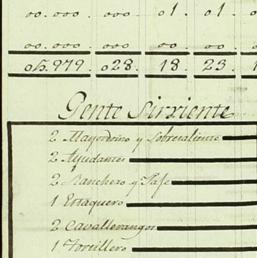 00.000 000 01. 01.
00.000 000 00 00
05.979 028 18 23
Gente Sirviente
2 Mayordomo y Sobresaliente
2 Ayudantes
2 Ranchero y
1 Estaquero
2 Cavallerangos
1 Tortillero